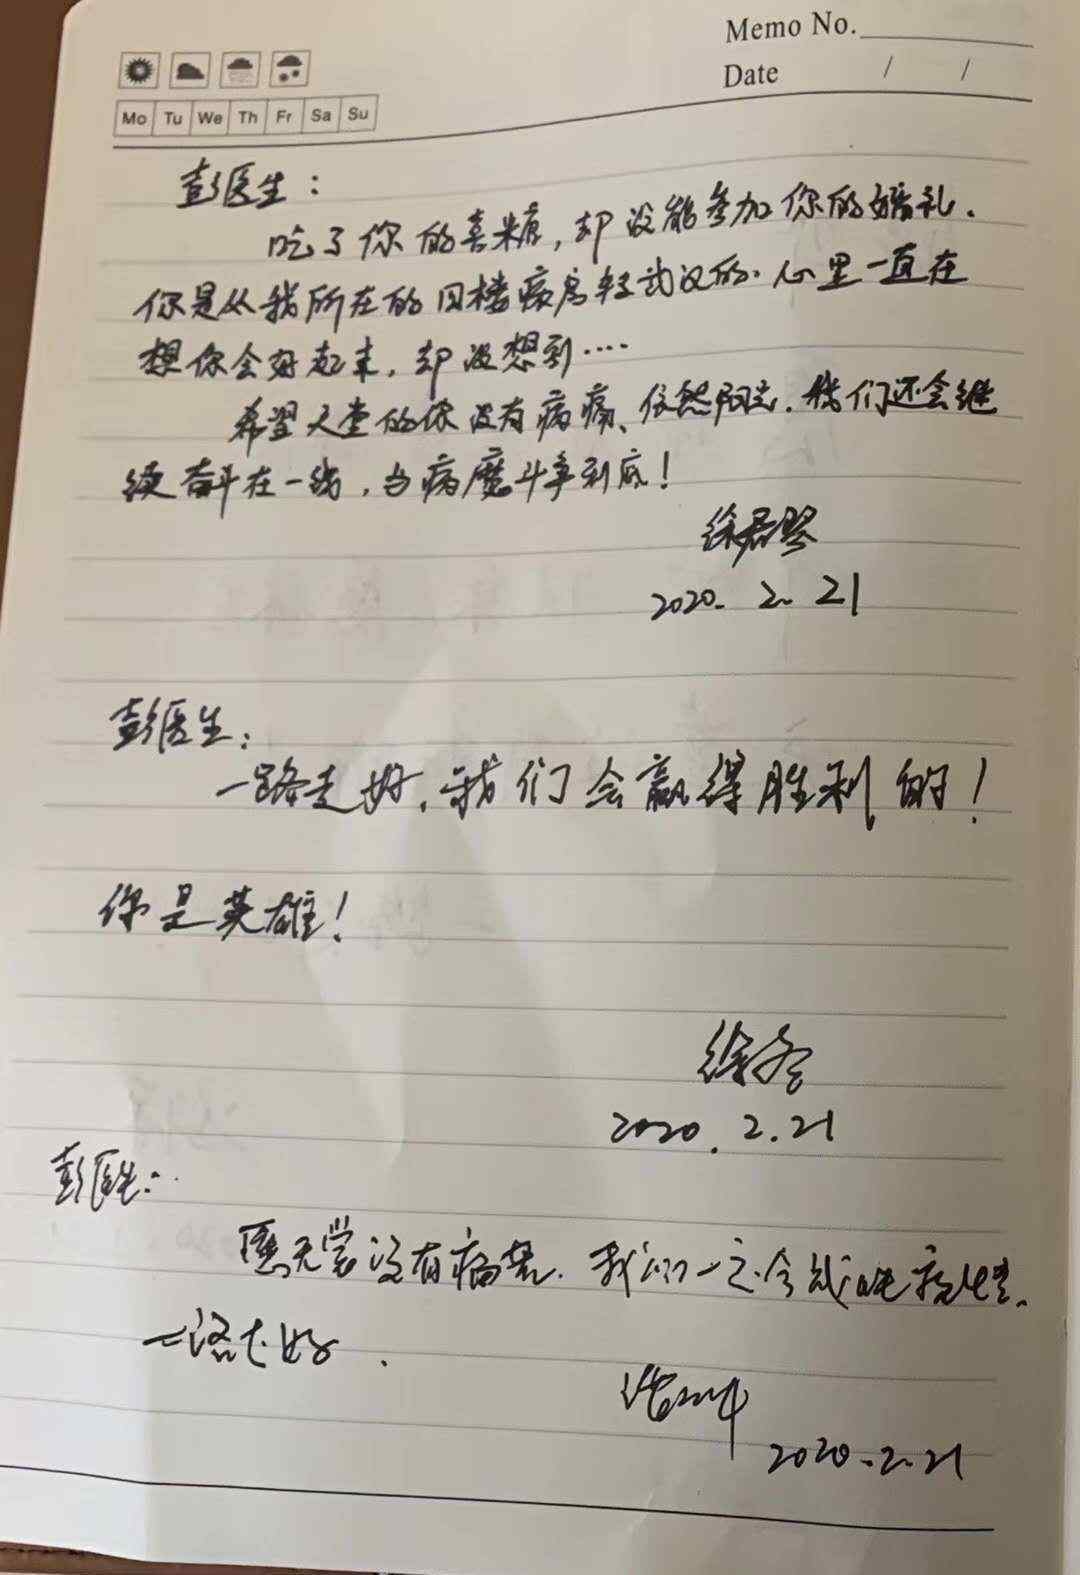 Memo No.
Date / /
Mo Tu We Th Fr Sa Su
彭医生：
吃了你的喜糖，却没能参加你的婚礼.
你是从我所在的四楼病房转武汉的. 心里一直在
想你会好起来，却没想到····
希望天堂的你没有病痛、依然阳光. 我们还会继
续奋斗在一线，与病魔斗争到底！
徐君
2020. 2. 21
彭医生：
一路走好，我们会赢得胜利的！
你是英雄！
徐
2020. 2. 21
彭医生：
愿天堂没有病，我们一定会战胜病
一路走好.
2020.2.21